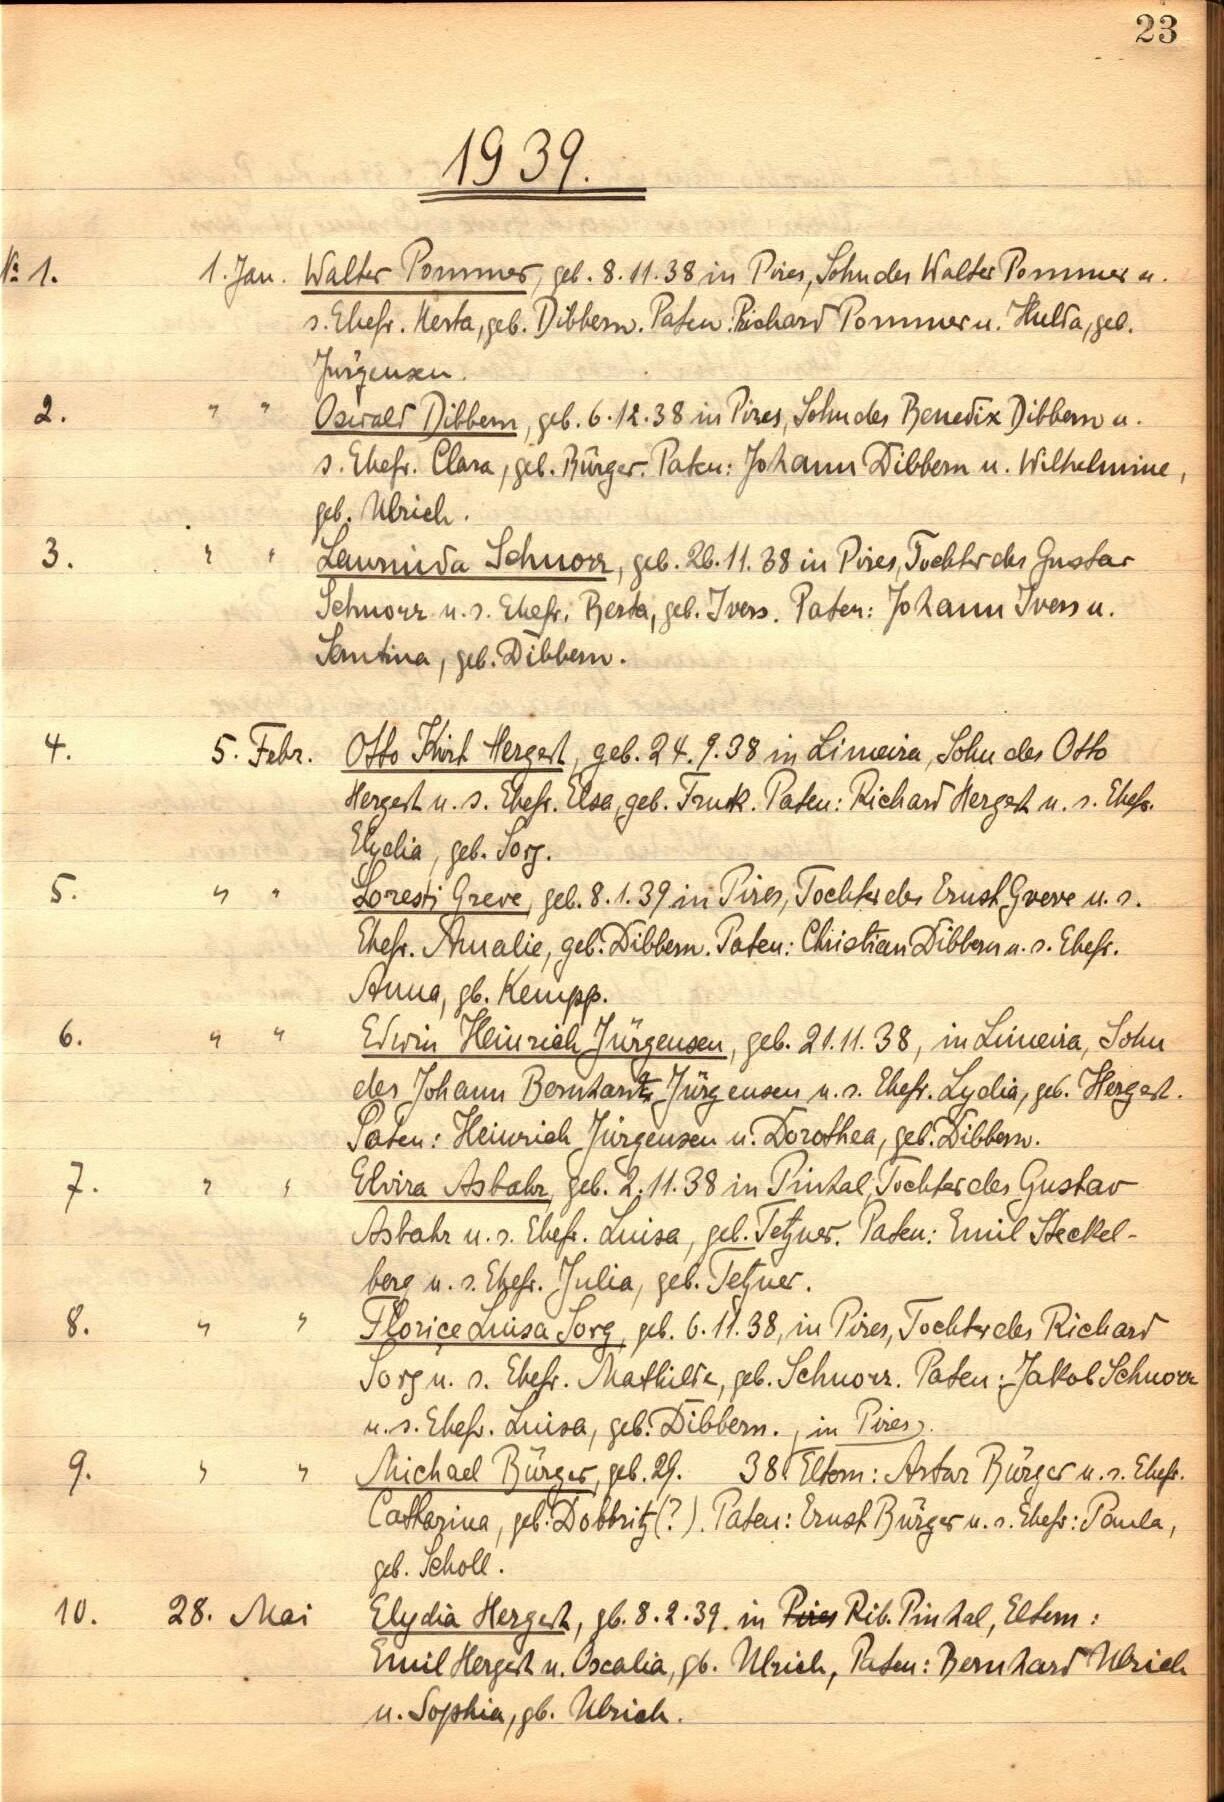 23
1939.
№ 1. 1. Jan. Walter Pommer, geb. 8.11.38 in Pires, Sohn des Walter Pommer u.
s. Ehefr. Herta, geb. Dibbern. Paten: Richard Pommer u. Hulda, geb.
Jürgensen.
2. " " Oswald Dibbern, geb. 6.12.38 in Pires, Sohn des Benedix Dibbern u.
s. Ehefr. Clara, geb. Bürger. Paten: Johann Dibbern u. Wilhelmine,
geb. Ulrich.
3. " " Laurinda Schnorr, geb. 26.11.38 in Pires, Tochter des Gustav
Schnorr u. s. Ehefr. Berta, geb. Ivers. Paten: Johann Ivers u.
Santina, geb. Dibbern.
4. 5. Febr. Otto Kurt Hergert, geb. 24.9.38 in Limeira, Sohn des Otto
Hergert u. s. Ehefr. Elsa, geb. Paten: Richard Hergert u. s. Ehefr.
Elydia, geb. Sorg.
5. " " Loresti Greve, geb. 8.1.39 in Pires, Tochter des Ernst Greve u. s.
Ehefr. Amalie, geb. Dibbern. Paten: Christian Dibbern u. s. Ehefr.
Anna, gb. Kempp.
6. " " Edwin Heinrich Jürgensen, geb. 21.11.38, in Limeira, Sohn
des Johann Bernhard Jürgensen u. s. Ehefr. Lydia, geb. Hergert.
Paten: Heinrich Jürgensen u. Dorothea, geb. Dibbern.
7. " " Elvira Asbahr, geb. 2.11.38 in Pinhal, Tochter des Gustav
Asbahr u. s. Ehefr. Luisa, geb. Tetzner. Paten: Emil Steckel-
berg u. s. Ehefr. Julia, geb. Tetzner.
8. " " Floriçe Luisa Sorg, geb. 6.11.38, in Pires, Tochter des Richard
Sorg u. s. Ehefr. Mathilde, geb. Schnorr. Paten: Jakob Schnorr
u. s. Ehefr. Luisa, geb. Dibbern. , in Pires.
9. " " Michael Bürger, geb. 29. 38. Eltern: Artur Bürger u. s. Ehefr.
Catharina, geb. Dobbritz (?). Paten: Ernst Bürger u. s. Ehefr: Paula,
geb. Scholl.
10. 28. Mai Elydia Hergert, gb. 8.2.39. in Pires Rib. Pinhal, Eltern:
Emil Hergert u. Oscalia, gb. Ulrich, Paten: Bernhard Ulrich
u. Sophia, gb. Ulrich.